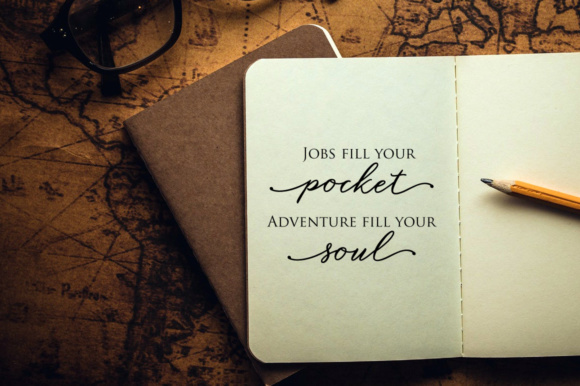 Jobs fill your
pocket
Adventure fill your
soul